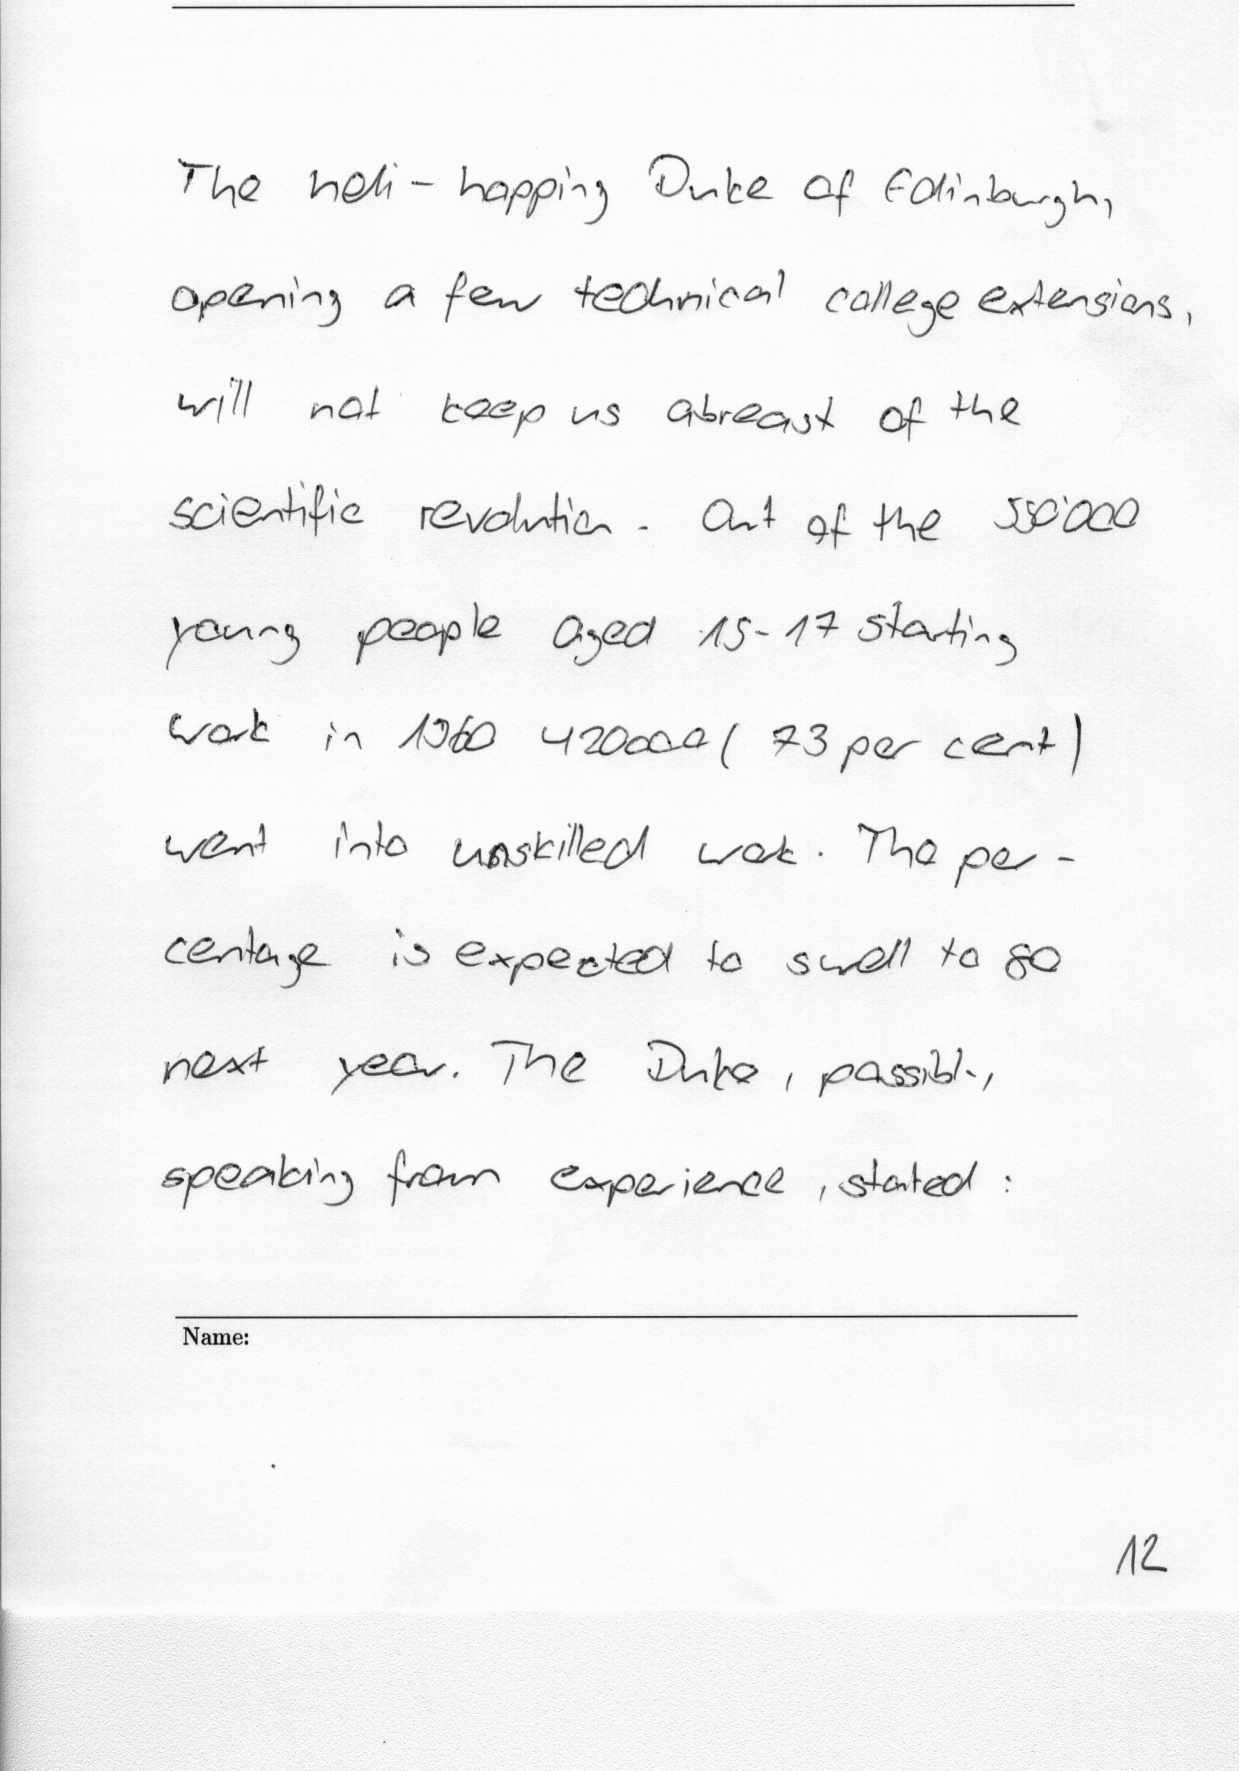 The heli-hopping Duke of Edinburgh,
opening a few technical college extensions,
will not keep us abreast of the
scientific revolution. Out of the 550'000
young people aged 15-17 starting
work in 1960 420000 ( 73 per cent )
went into unskilled work. The per-
centage is expected to swell to 80
next year. The Duke, possibly,
speaking from experience, stated:
Name:
12